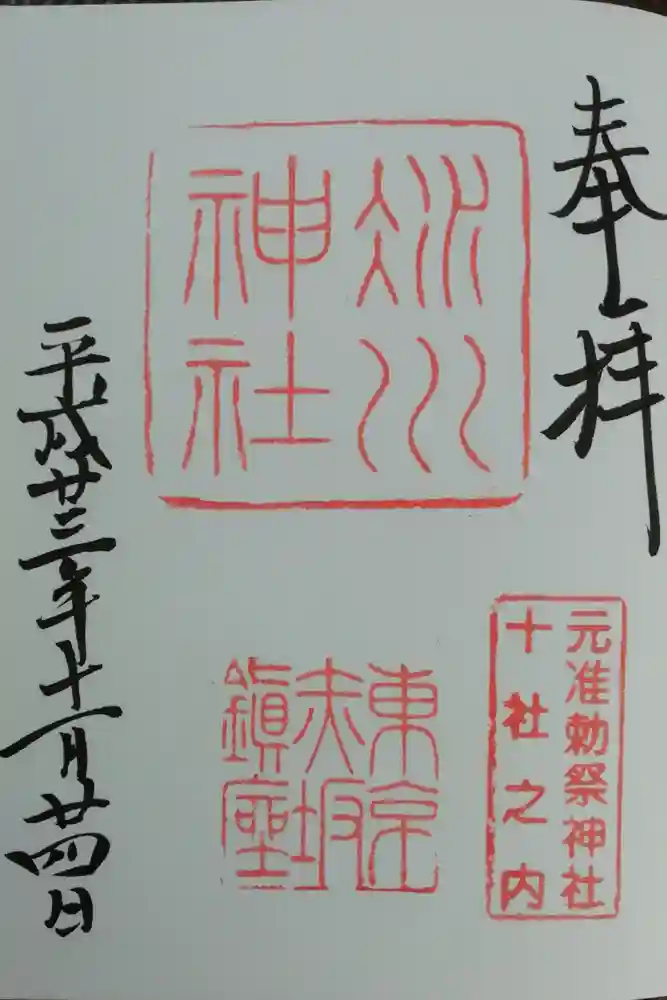 奉拝
冰川
神社
元准勅祭神社
十社之内
東京
赤坂
鎭座
平成廿三年十一月廿四日